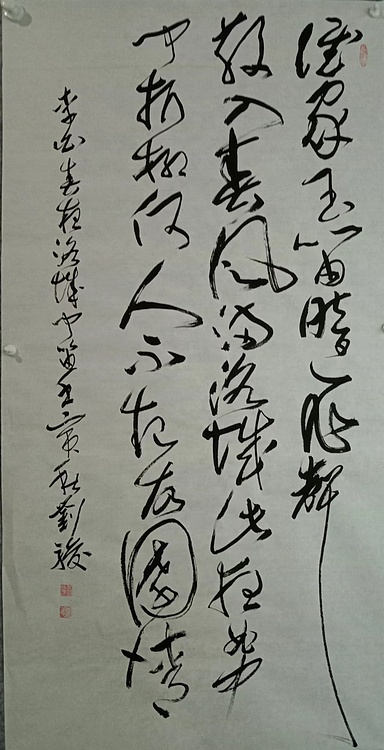 誰家玉笛暗飛聲
散入春風滿洛城此夜曲中
聞折柳何人不起故園情
李白春夜洛城聞笛壬寅秋劉